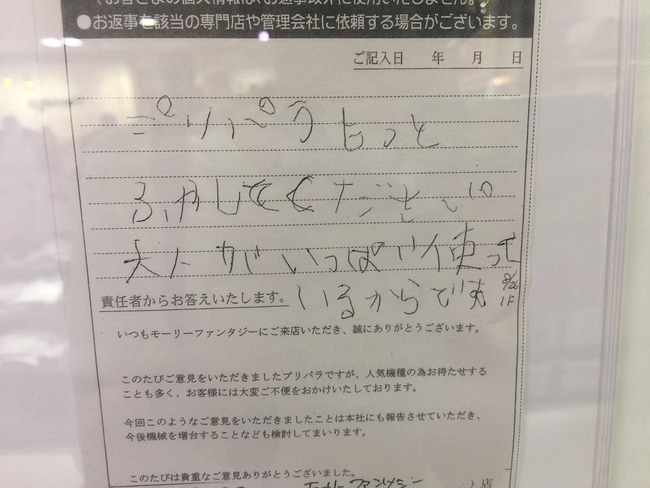 ●お返事を該当の専門店や管理会社に依頼する場合がございます。
ご記入日　年　月　日
プリパラもっと
ふやしてください
大人がいっぱい使って
いるからです
8/26
1F
責任者からお答えいたします。
いつもモーリーファンタジーにご来店いただき、誠にありがとうございます。
このたびご意見をいただきましたプリパラですが、人気機種の為お待たせする
ことも多く、お客様には大変ご不便をおかけいたしております。
今回このようなご意見をいただきましたことは本社にも報告させていただき、
今後機械を増台することなども検討してまいります。
このたびは貴重なご意見ありがとうございました。
ファンタジー 店